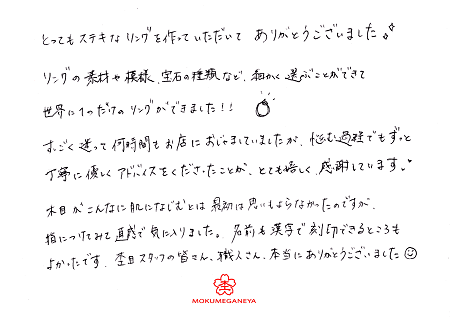 とってもステキなリングを作っていただいて ありがとうございました。
リングの素材や模様、宝石の種類など、細かく選ぶことができて
世界に1つだけのリングができました!!
すっごく迷って何時間もお店におじゃましていましたが、悩む過程でもずっと
丁寧に優しくアドバイスをくださったことが、とても嬉しく、感謝しています。
木目がこんなに肌になじむとは最初は思いもよらなかったのですが、
指につけてみて直感で気に入りました。名前も漢字で刻印できるところも
よかったです。杢目スタッフの皆さん、職人さん、本当にありがとうございました
MOKUMEGANEYA